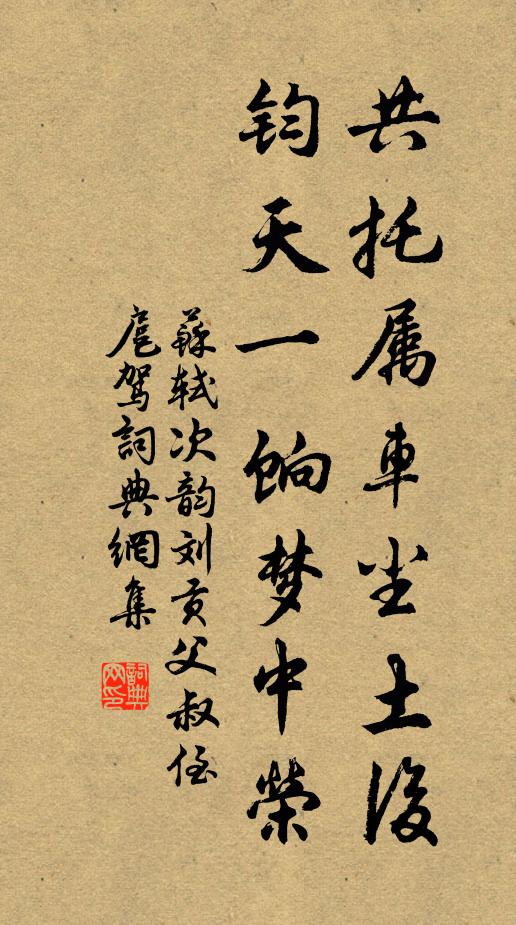 共托属车尘土後
钧天一饷梦中榮
蘇轼次韵刘贡父叔侄
扈驾詞典網集
詞典网印